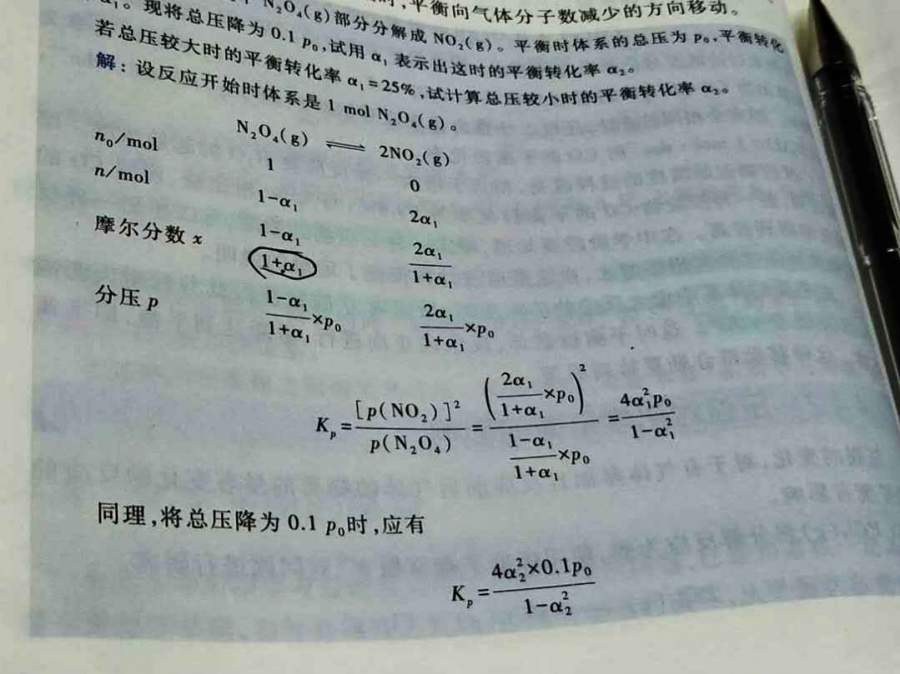 ,平衡向气体分子数减少的方向移动。
N₂O₄(g)部分分解成 NO₂(g)。平衡时体系的总压为 p₀,平衡转化
α₁。现将总压降为 0.1 p₀,试用 α₁ 表示出这时的平衡转化率 α₂。
若总压较大时的平衡转化率 α₁=25%,试计算总压较小时的平衡转化率 α₂。
解:设反应开始时体系是 1 mol N₂O₄(g)。
N₂O₄(g) ⇌ 2NO₂(g)
n₀/mol 1 0
n/mol 1-α₁ 2α₁
摩尔分数 x (1-α₁)/(1+α₁) 2α₁/(1+α₁)
分压 p (1-α₁)/(1+α₁)×p₀ 2α₁/(1+α₁)×p₀
Kₚ=[p(NO₂)]²/p(N₂O₄)=(2α₁/(1+α₁)×p₀)²/((1-α₁)/(1+α₁)×p₀)=4α₁²p₀/(1-α₁²)
同理,将总压降为 0.1 p₀时,应有
Kₚ=4α₂²×0.1p₀/(1-α₂²)